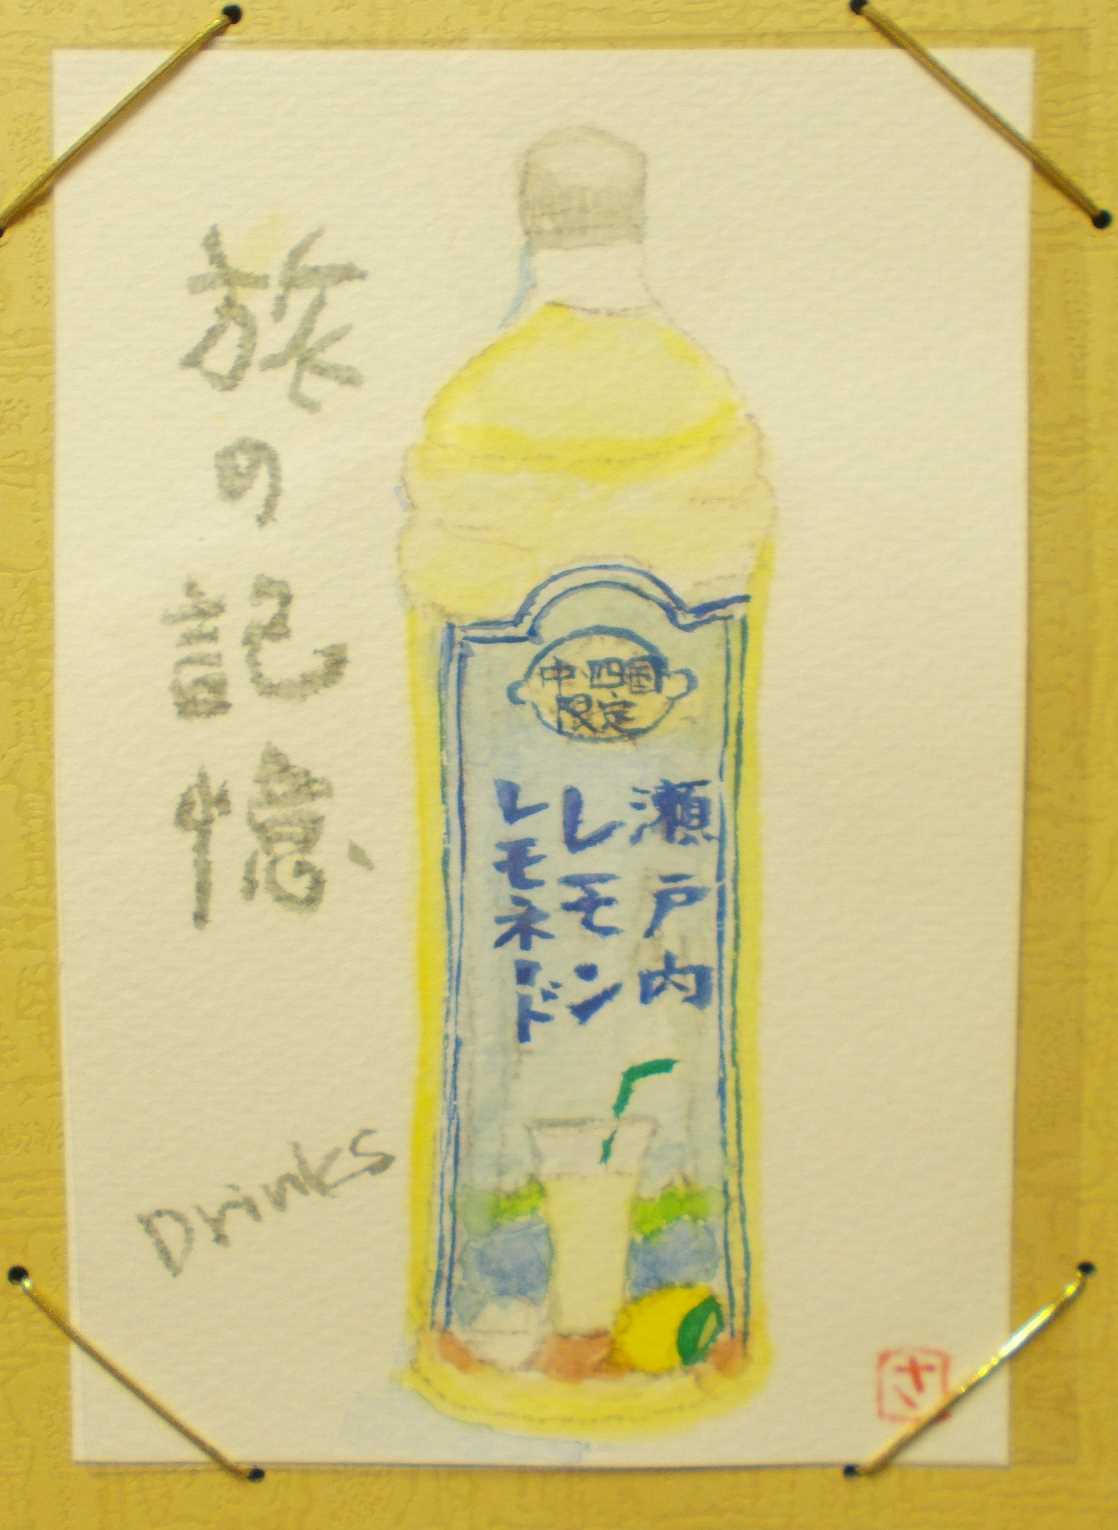 旅の記憶
中・四国
限定
瀬戸内
レモン
レモネード
Drinks
さ